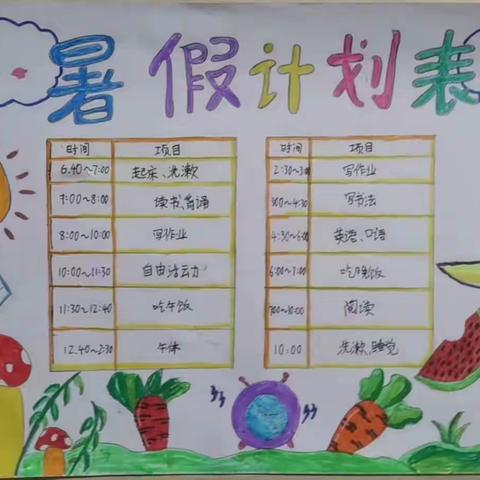 暑假计划表
时间 项目
6.40~7:00 起床、洗漱
7:00~8:00 读书、背诵
8:00~10:00 写作业
10:00~11:30 自由活动
11:30~12:40 吃午饭
12.40~2:30 午休
时间 项目
2:30~3:00 写作业
3:00~4:30 写书法
4:30~6:00 英语、口语
6:00~7:00 吃晚饭
7:00~10:00 阅读
10:00 洗漱、睡觉